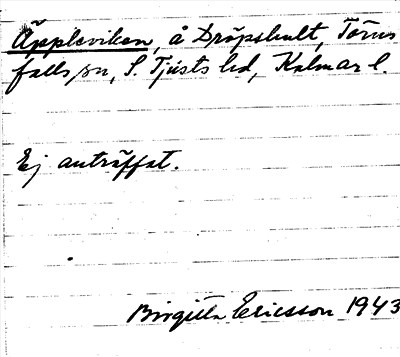 Äppleviken, å Dröpshult, Törns
falls sn, S. Tjusts hd, Kalmar l.
Ej anträffat.
Birgitta Ericsson 1943